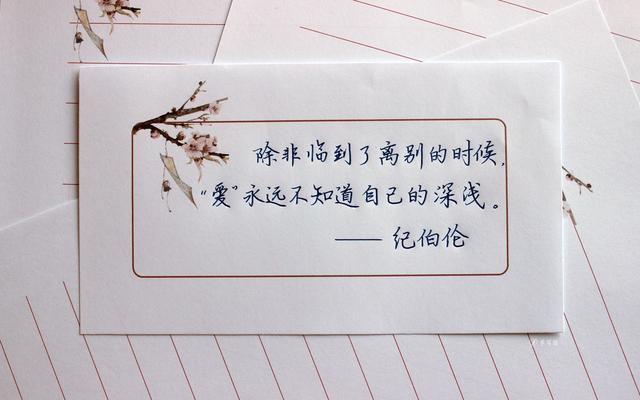 除非临到了离别的时候，
“爱”永远不知道自己的深浅。
——纪伯伦